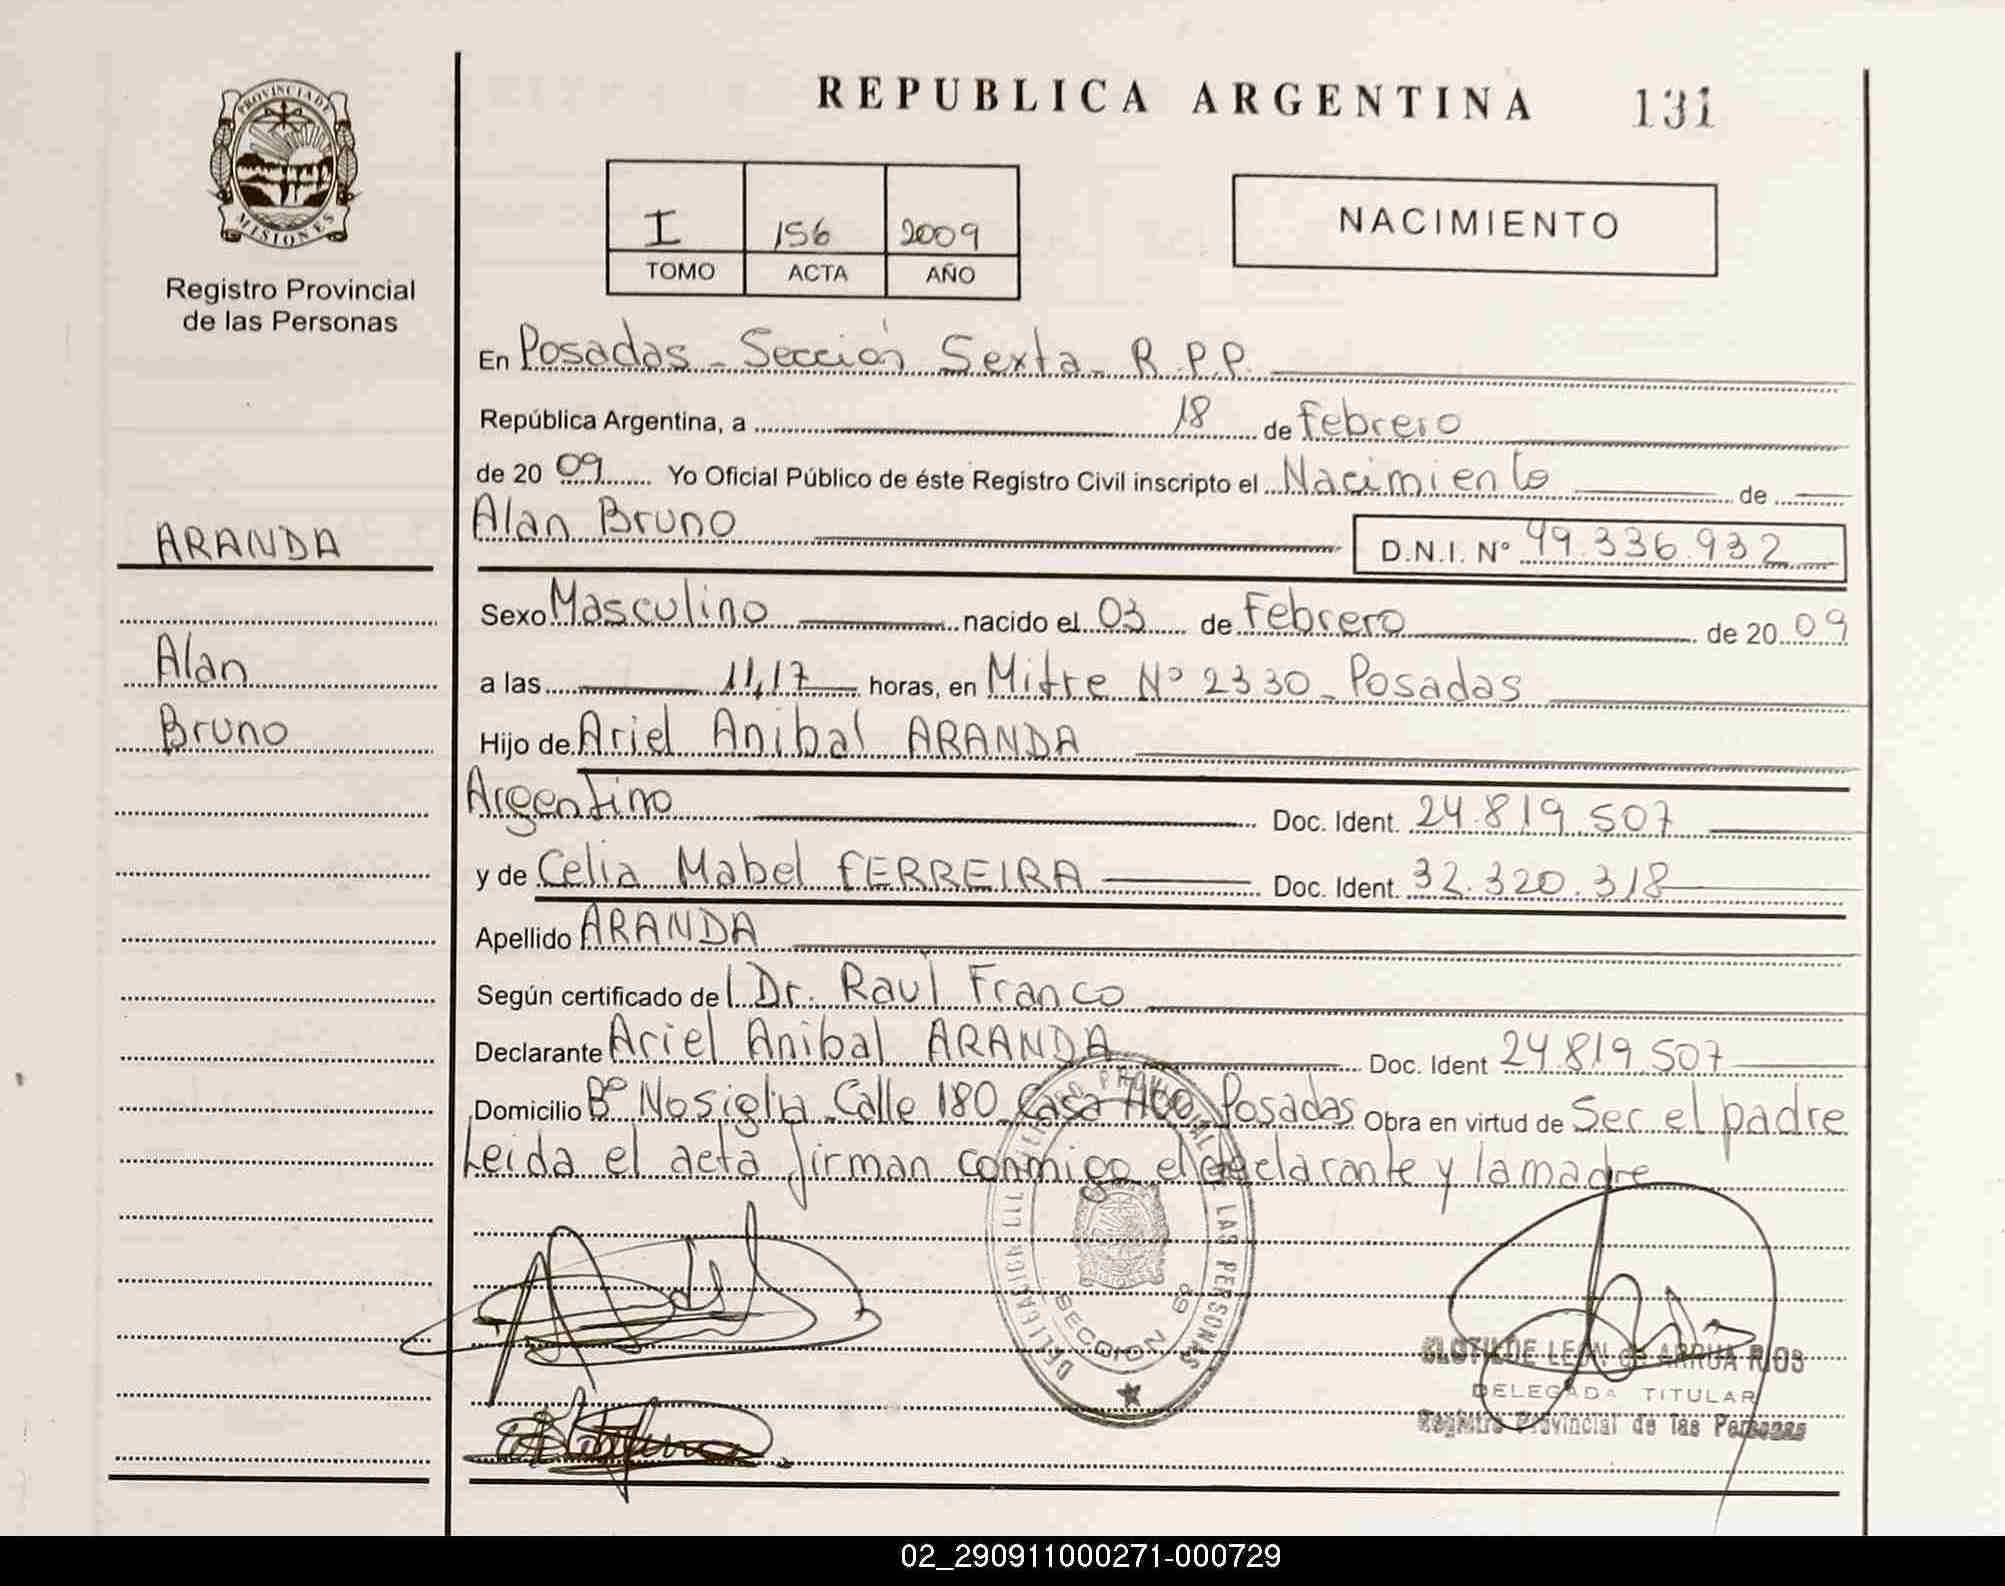 REPUBLICA ARGENTINA 131
PROVINCIA DE
MISIONES
Registro Provincial
de las Personas
I 156 2009
TOMO ACTA AÑO
NACIMIENTO
En Posadas - Sección Sexta - R.P.P.
República Argentina, a 18 de Febrero
de 20 09 Yo Oficial Público de éste Registro Civil inscripto el Nacimiento de
Alan Bruno D.N.I. N° 49.336.932
ARANDA
Alan
Bruno
Sexo Masculino nacido el 03 de Febrero de 20 09
a las 11,17 horas, en Mitre N° 2330 - Posadas
Hijo de Ariel Anibal ARANDA
Argentino Doc. Ident. 24.819.507
y de Celia Mabel FERREIRA Doc. Ident. 32.320.318
Apellido ARANDA
Según certificado del Dr. Raúl Franco
Declarante Ariel Anibal ARANDA Doc. Ident 24.819.507
Domicilio B° Nosiglia Calle 180 Casa Posadas Obra en virtud de Ser el padre
Leida el acta firman conmigo el declarante y la madre
PROVINCIAL DE LAS PERSONAS
SECCION 6ª
CLOTILDE LEON de ARRUA RIOS
DELEGADA TITULAR
Registro Provincial de las Personas
02_290911000271-000729